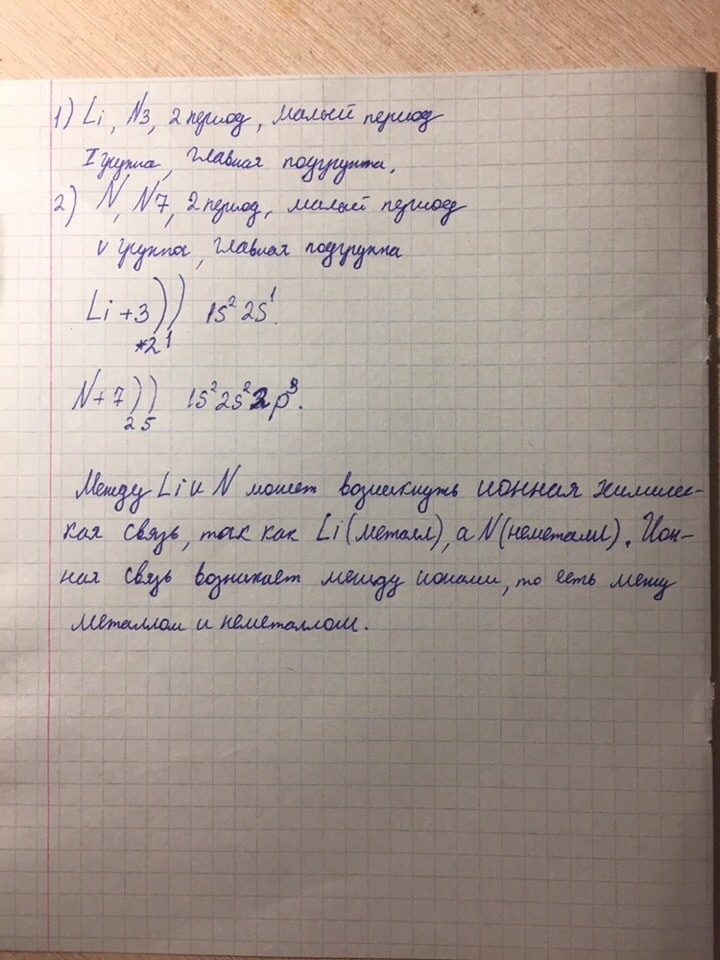 1) Li, N3, 2 период, малый период
I группа, главная подгруппа.
2) N, N7, 2 период, малый период
V группа, главная подгруппа
Li +3)) 1s² 2s¹.
2 1
N+7)) 1s² 2s² 2p³.
2 5
Между Li и N может возникнуть ионная химичес-
кая связь, так как Li(металл), а N(неметалл). Ион-
ная связь возникает между ионами, то есть межу
металлом и неметаллом.